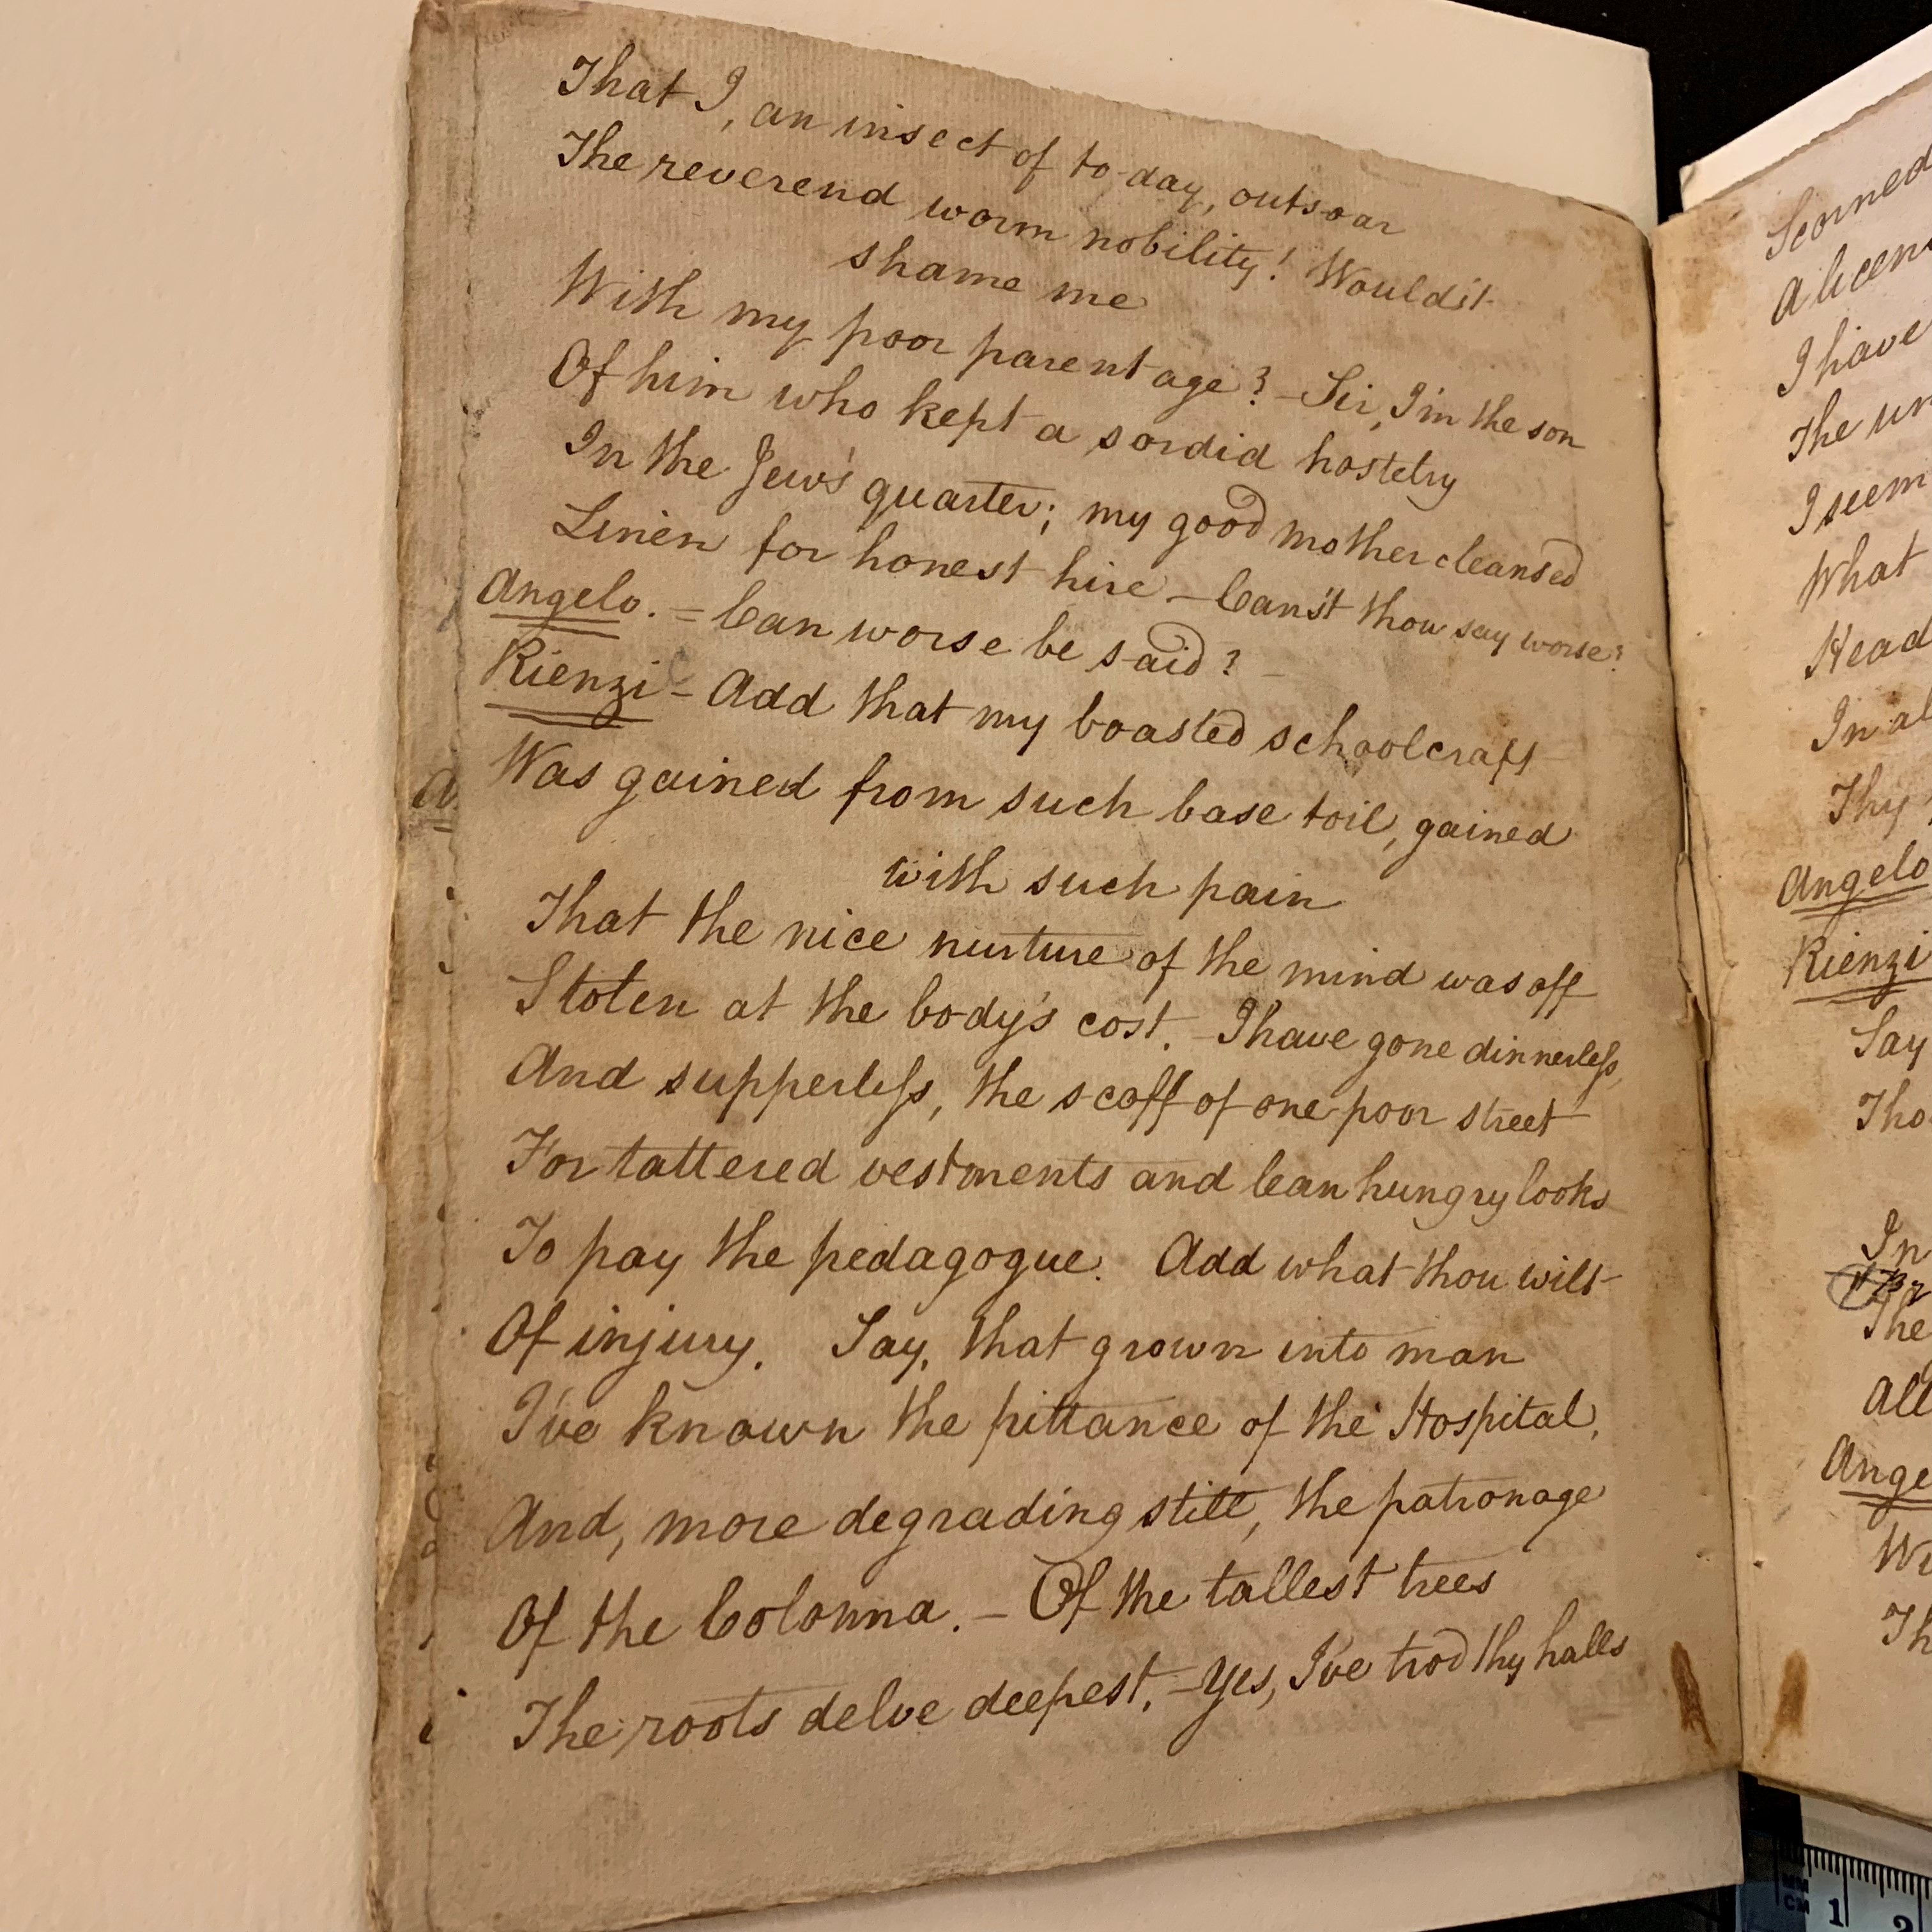 That I, an insect of to-day, outsoar
The reverend worm nobility! Would'st
shame me
With my poor parentage? – Sir, I'm the son
Of him who kept a sordid hostelry
In the Jew's quarter; my good mother cleansed
Linen for honest hire – Can'st thou say worse?
Angelo. = Can worse be said? –
Rienzi – Add that my boasted schoolcraft
Was gained from such base toil, gained
with such pain
That the nice nurture of the mind was oft
Stolen at the body's cost. – I have gone dinnerless
And supperless, the scoff of one poor street
For tattered vestments and lean hungry looks
To pay the pedagogue. Add what thou wilt
Of injury. Say, that grown into man
I've known the pittance of the Hospital,
And, more degrading still, the patronage
Of the Colonna. – Of the tallest trees
The roots delve deepest. – Yes, I've trod thy halls
Scorned
I have
The
I seem
What
Head
Thy
Angelo
Rienzi
Say
In
The
All
MM
CM 1